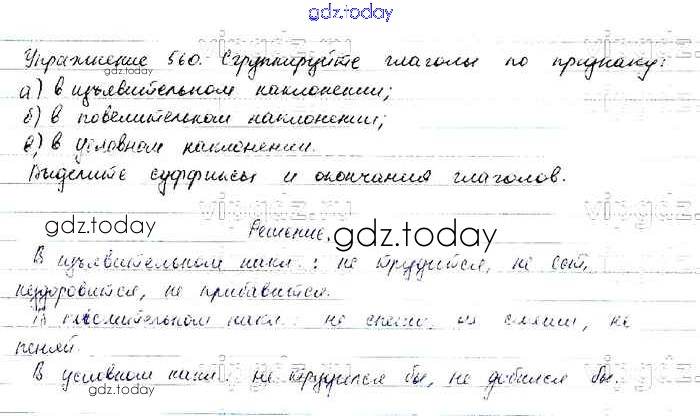 gdz.today
Упражнение 560. Сгруппируйте глаголы по признаку:
gdz.today
а) в изъявительном наклонении;
б) в повелительном наклонении;
в) в условном наклонении.
Выделите суффиксы и окончания глаголов.
gdz.today
Решение.
gdz.today
В изъявительном накл.: не трудится, не
нездоровится, не прибавится.
В накл.: не спеши, не не
пеняй.
В условном накл.: не трудился бы, не добился бы.
gdz.today